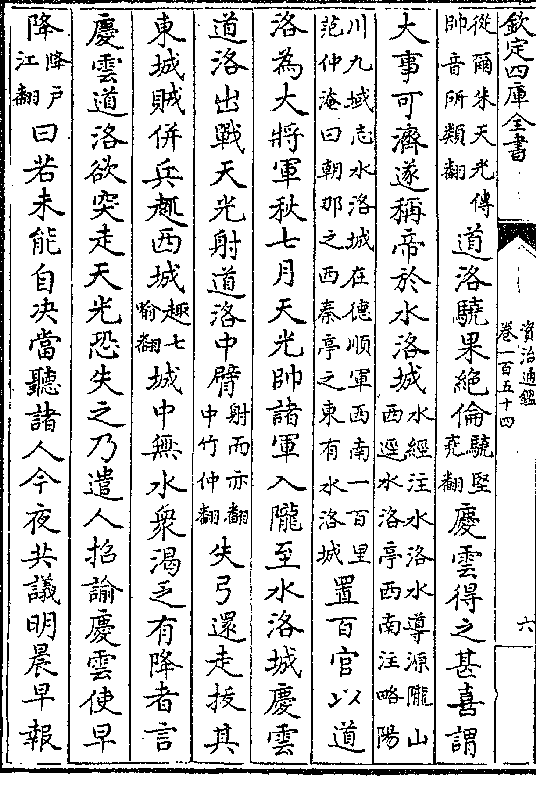 欽定四庫全書
資治通鑑
卷一百五十四
六
從爾朱天光傳
帥音所類翻
道洛驍果絶倫
驍堅
堯翻
慶雲得之甚喜謂
大事可濟遂稱帝於水洛城
水經注水洛水導源隴山
西逕水洛亭西南注略陽
川九域志水洛城在德順軍西南一百里
范仲淹曰朝那之西秦亭之東有水洛城
置百官以道
洛為大將軍秋七月天光帥諸軍入隴至水洛城慶雲
道洛出戰天光射道洛中臂
射而亦翻
中竹仲翻
失弓還走拔其
東城賊併兵趣西城
趣七
喻翻
城中無水衆渴乏有降者言
慶雲道洛欲突走天光恐失之乃遣人招諭慶雲使早
降
降戶
江翻
曰若未能自决當聽諸人今夜共議明晨早報